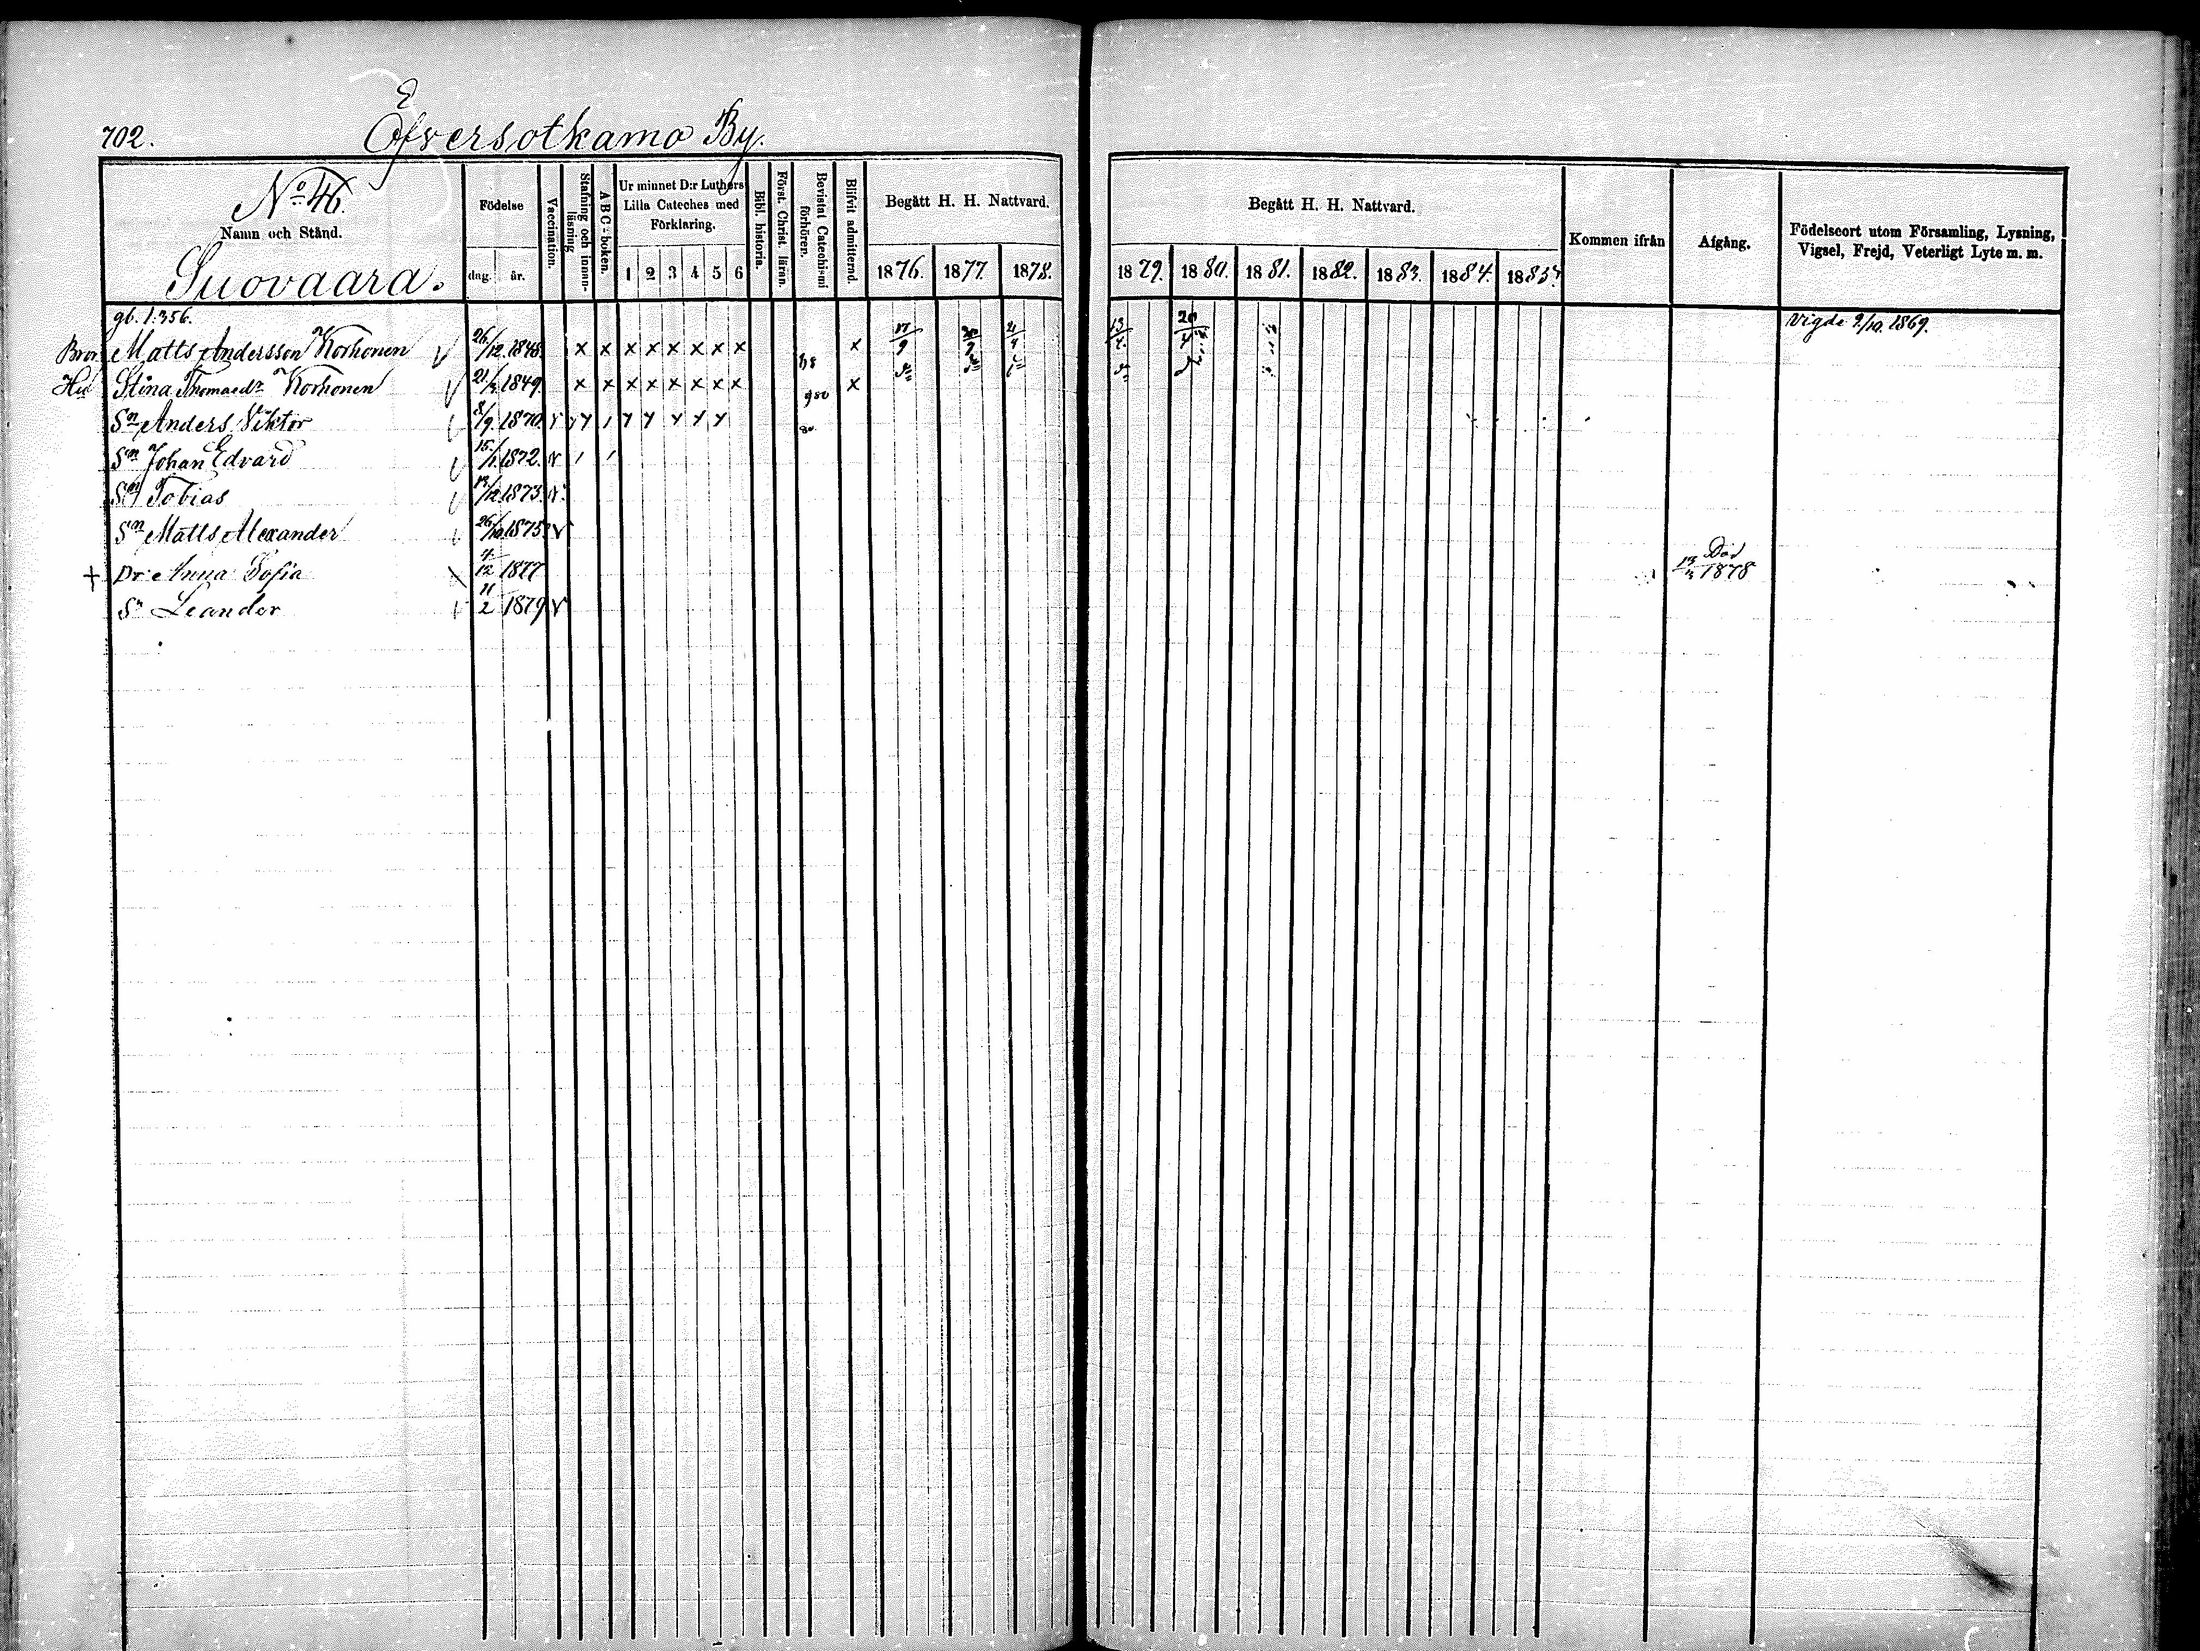 702.
E
Öfversotkamo By.
No 46.
Namn och Stånd.
Suovaara.
Födelse
dag.
år.
Vaccination.
Stafning och innan-läsning
A B C - boken.
Ur minnet D:r Luthers
Lilla Cateches med
Förklaring.
1 2 3 4 5 6
Bibl. historia.
Först. Christ. läran.
Bevistat Catechismi förhören.
Blifvit admitternd.
Begått H. H. Nattvard.
1876. 1877. 1878.
Begått H. H. Nattvard.
1879. 1880. 1881. 1882. 1883. 1884. 1885.
Kommen ifrån
Afgång.
Födelseort utom Församling, Lysning,
Vigsel, Frejd, Veterligt Lyte m. m.
gb. 1.356.
Bror Matts Andersson Korhonen 26/12. 1848. x x x x x x x x x 17/9 13/4 20/4 Vigde 9/10. 1869.
Hu Stina Thomasdr Korhonen 1849. x x x x x x x x x
Sn Anders Viktor 8/9. 1870.
80.
Sn Johan Edvard 15/1. 1872.
Sn Tobias 1873.
Sn Matts Alexander 26/10. 1875.
+ Dr Anna Sofia 4/12 1877 Död 1878
Sn Leander 11/2 1879